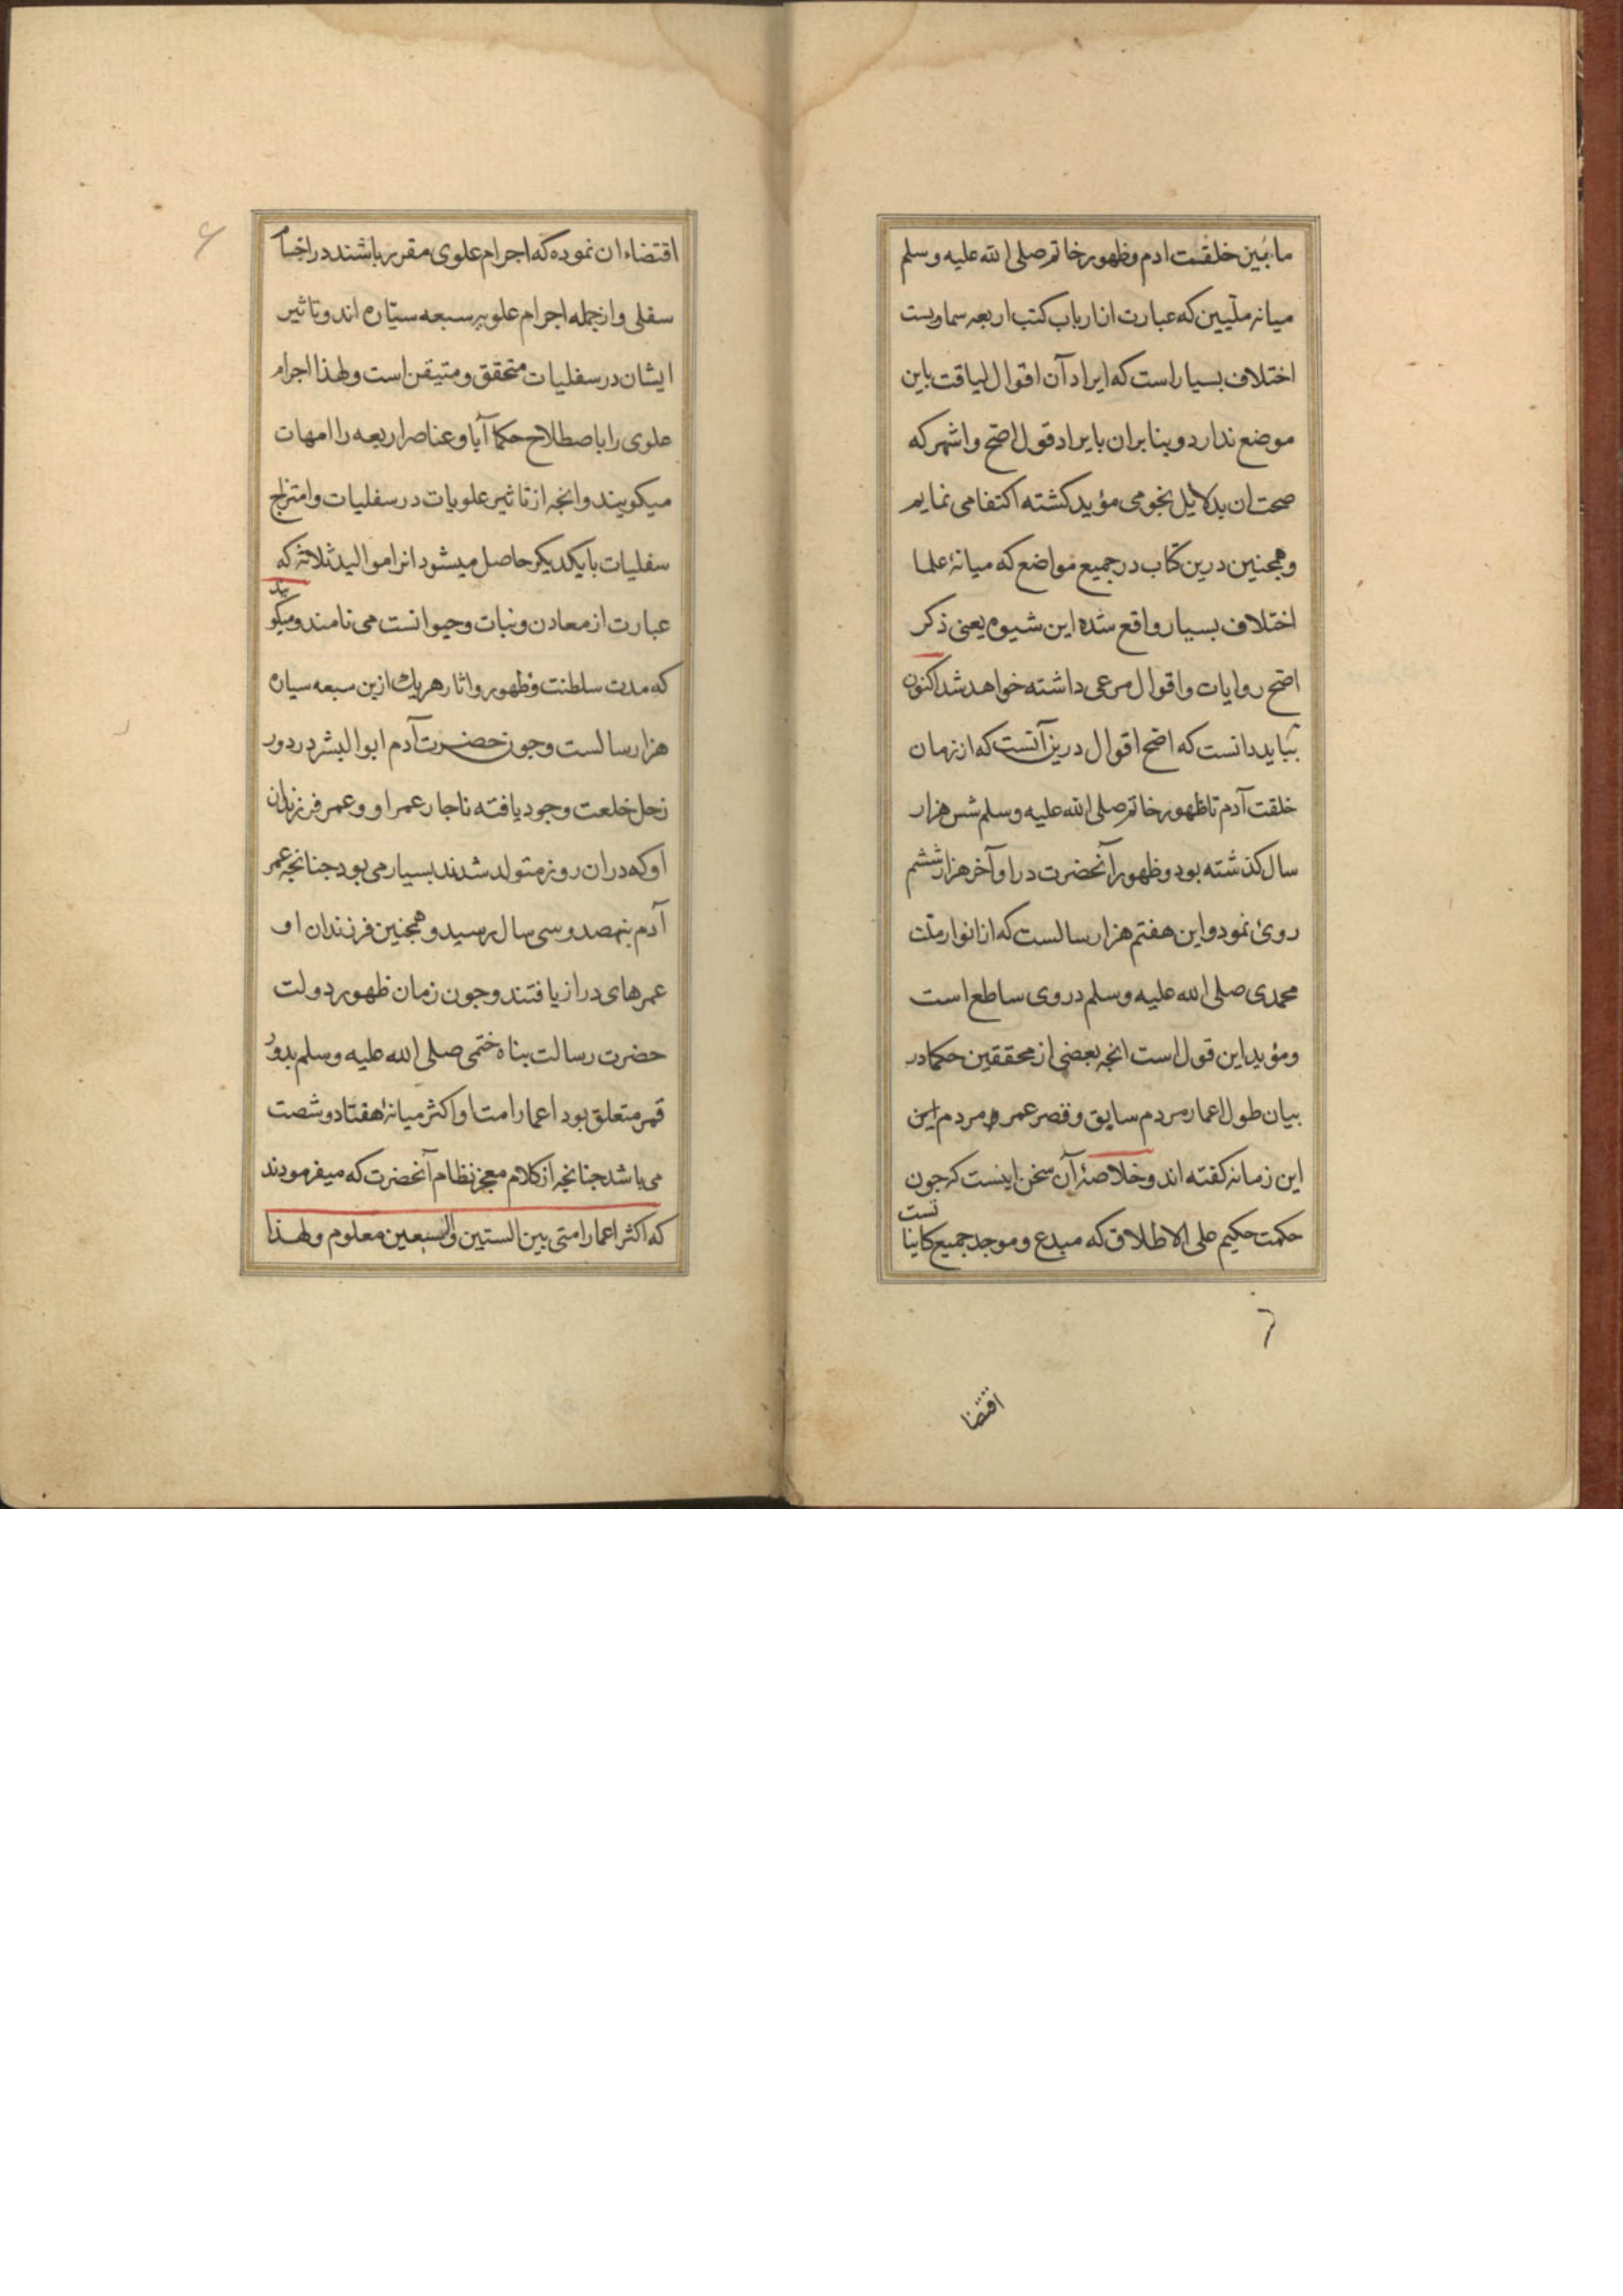 مابین خلقت ادم وظهور خاتم صلی الله علیه وسلم
میانه ملیین که عبارت از ارباب کتب اربعه سماویست
اختلاف بسیار است که ایراد آن اقوال لیاقت باین
موضع ندارد و بنابران بایراد قول اصح واشهر که
صحت ان بدلایل نجومی مؤید کشته اکتفا می نمایم
وهمجنین درین کتاب در جمیع مواضع که میانۀ علما
اختلاف بسیار واقع شده این شیوه یعنی ذکر
اصح روایات واقوال مرعی داشته خواهد شد اکنون
بباید دانست که اصح اقوال درین آنست که از زمان
خلقت آدم تا ظهور خاتم صلی الله علیه وسلم شس هزار
سال کذشته بود وظهور آنحضرت در اوآخر هزار ششم
روی نمود واین هفتم هزار سالست که از انوار ملت
محمدی صلی الله علیه وسلم در وی ساطع است
ومؤید این قول است انجه بعضی از محققین حکما در
بیان طول اعمار مردم سابق وقصر عمر مردم این
این زمانه کفته اند وخلاصۀ آن سخن اینست که جون
حکمت حکیم علی الاطلاق که مبدع وموجد جمیع کاینا
تست
٦
اقتضا
اقتضاء ان نموده که اجرام علوی مقرر باشند در اجسا
سفلی واز جمله اجرام علویه سبعه سیّاره اند وتاثیر
ایشان در سفلیات متحقق ومتیقن است ولهذا اجرام
علوی را باصطلاح حکما آبا وعناصر اربعه را امهات
میکویند وانجه از تاثیر علویات در سفلیات وامتزاج
سفلیات بایکدیکر حاصل میشود انرا موالید ثلاثه که
عبارت از معادن ونبات وحیوانست می نامند ومیکو
یند
که مدت سلطنت وظهور واثار هریك ازین سبعه سیاره
هزار سالست وجون حضرت آدم ابوالبشر در دور
زحل خلعت وجود یافته ناجار عمر او وعمر فرزندان
او که دران روز متولد شدند بسیار می بود جنانجه عمر
آدم بنهصد وسی سال رسید وهمجنین فرزندان او
عمرهای دراز یافتند وجون زمان ظهور دولت
حضرت رسالت بناه ختمی صلی الله علیه وسلم بدور
قمر متعلق بود اعمار امت او اکثر میانۀ هفتاد وشصت
می باشد جنانجه از کلام معجز نظام آنحضرت که میفرمودند
که اکثر اعمار امتی بین الستین والسبعین معلوم ولهذا